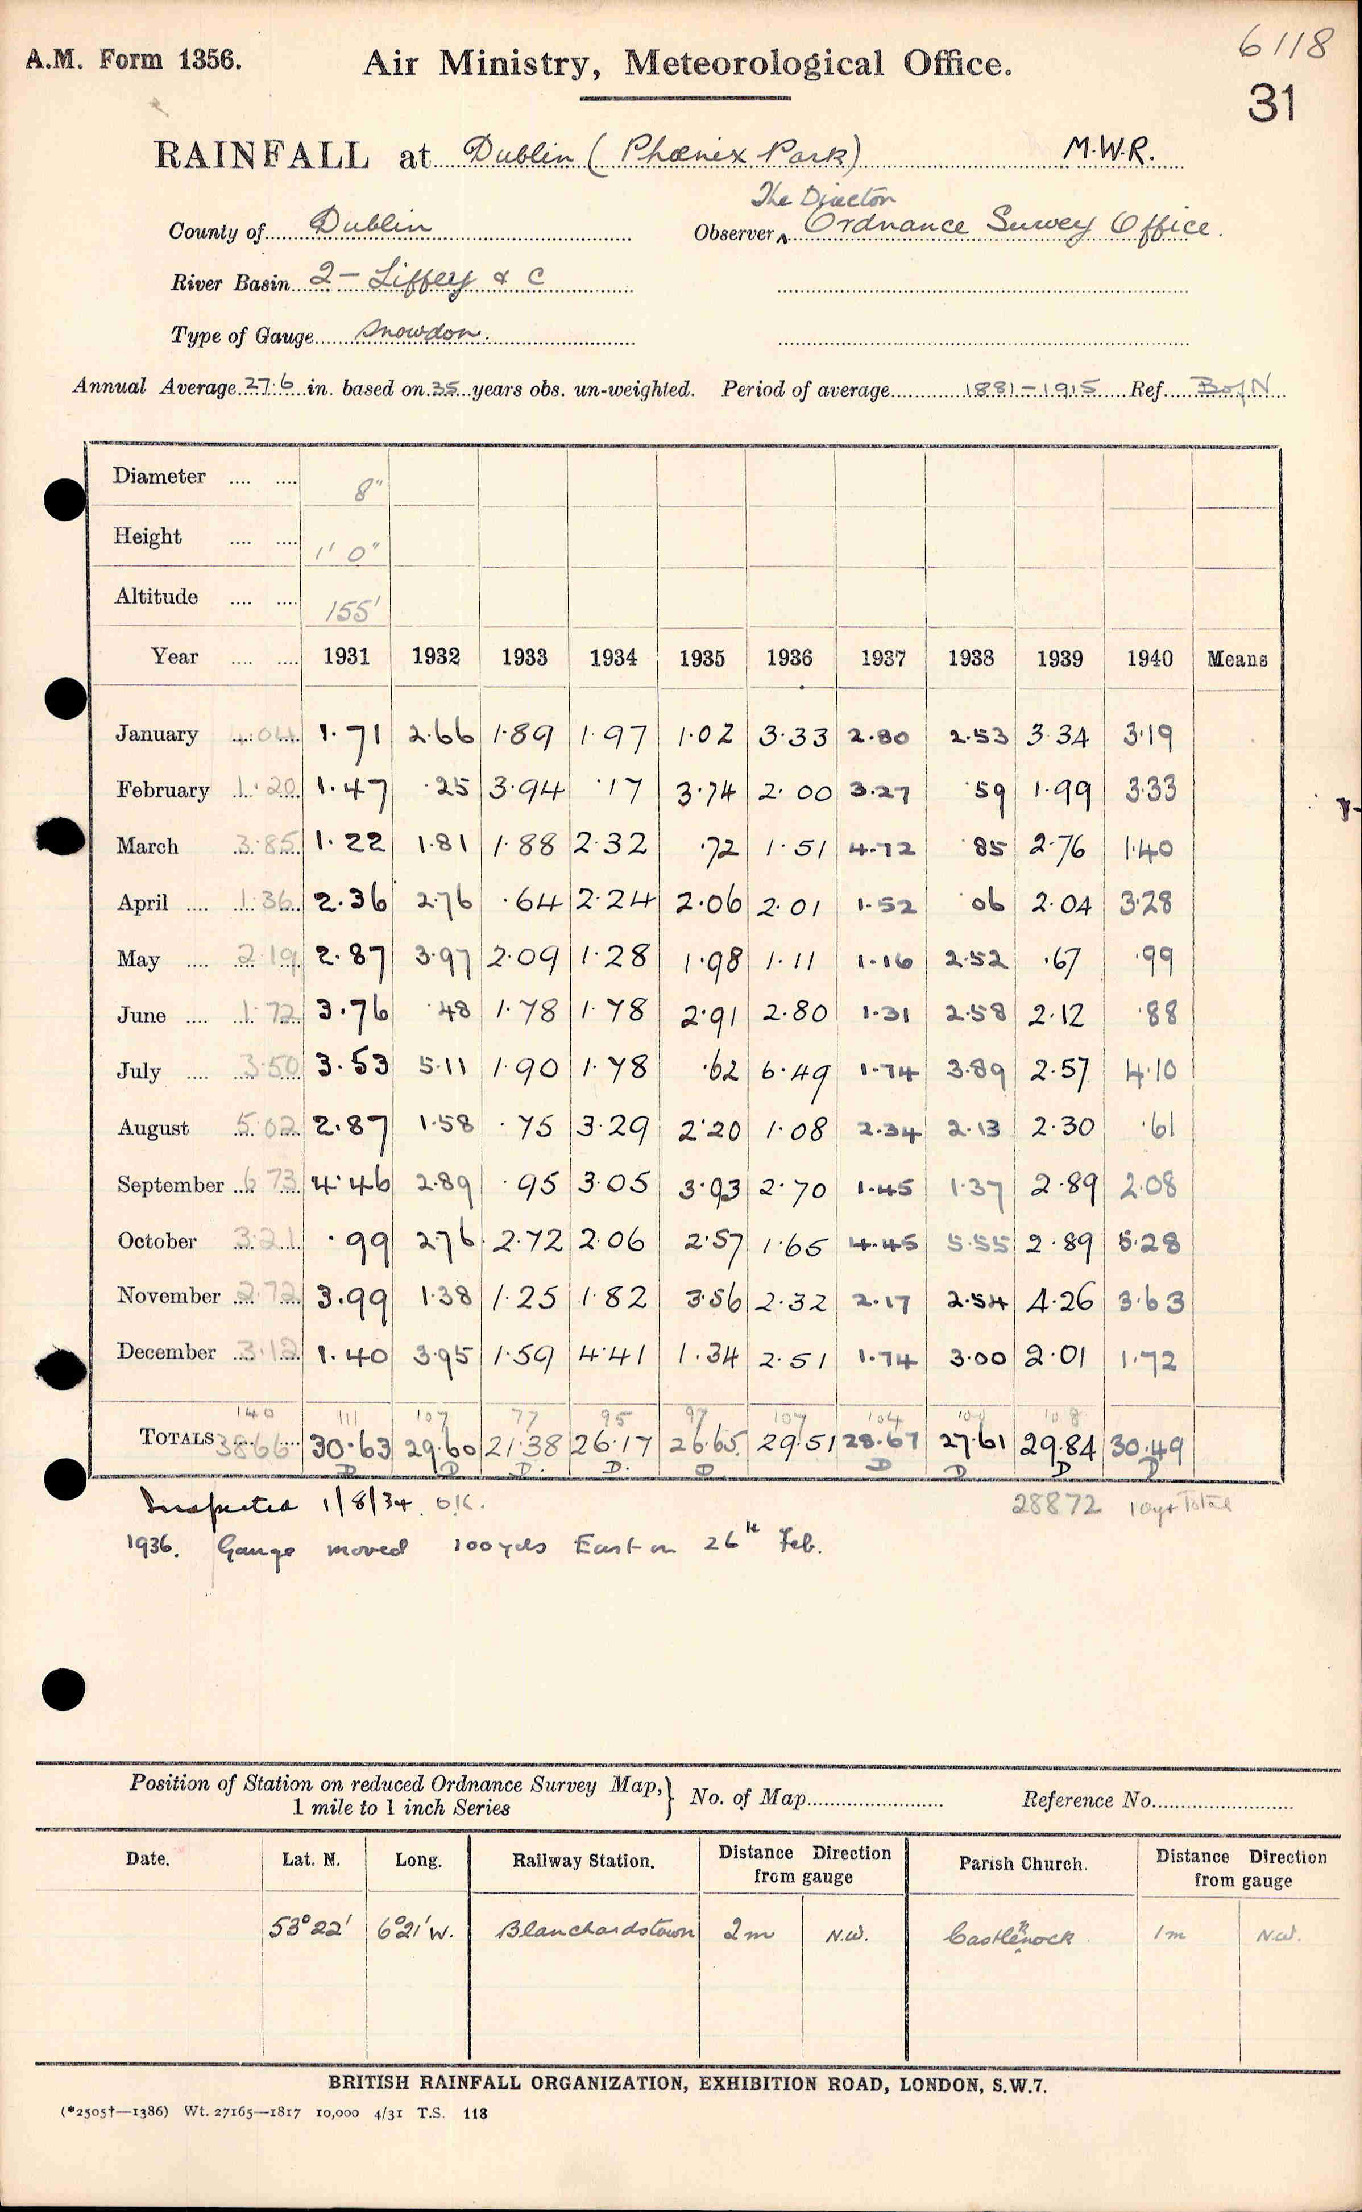 6118
A.M. Form 1356.
Air Ministry, Meteorological Office.
31
RAINFALL at Dublin (Phœnix Park) M.W.R.
The Director
County of Dublin Observer Ordnance Survey Office.
River Basin 2 - Liffey & C
Type of Gauge Snowdon.
Annual Average 27.6 in. based on 35 years obs. un-weighted. Period of average 1881-1915 Ref. B of N
Diameter 8"
Height 1' 0"
Altitude 155'
Year 1931 1932 1933 1934 1935 1936 1937 1938 1939 1940 Means
January 4.04 1.71 2.66 1.89 1.97 1.02 3.33 2.80 2.53 3.34 3.19
February 1.20 1.47 .25 3.94 .17 3.74 2.00 3.27 .59 1.99 3.33
March 3.85 1.22 1.81 1.88 2.32 .72 1.51 4.72 .85 2.76 1.40
April 1.36 2.36 2.76 .64 2.24 2.06 2.01 1.52 .06 2.04 3.28
May 2.19 2.87 3.97 2.09 1.28 1.98 1.11 1.16 2.52 .67 .99
June 1.72 3.76 .48 1.78 1.78 2.91 2.80 1.31 2.58 2.12 .88
July 3.50 3.53 5.11 1.90 1.78 .62 6.49 1.74 3.89 2.57 4.10
August 5.02 2.87 1.58 .75 3.29 2.20 1.08 2.34 2.13 2.30 .61
September 6.73 4.46 2.89 .95 3.05 3.93 2.70 1.45 1.37 2.89 2.08
October 3.21 .99 2.76 2.72 2.06 2.57 1.65 4.45 5.55 2.89 5.28
November 2.72 3.99 1.38 1.25 1.82 3.56 2.32 2.17 2.54 4.26 3.63
December 3.12 1.40 3.95 1.59 4.41 1.34 2.51 1.74 3.00 2.01 1.72
140 111 107 77 95 97 107 104 100 108
TOTALS 38.66 30.63 29.60 21.38 26.17 26.65 29.51 28.67 27.61 29.84 30.49
D D D. D. D D D D D
Inspected 1/8/34 O.K. 28872 10 yr Total
1936. Gauge moved 100 yds East on 26th Feb.
Position of Station on reduced Ordnance Survey Map, } No. of Map Reference No.
1 mile to 1 inch Series
Date. Lat. N. Long. Railway Station. Distance Direction from gauge Parish Church. Distance Direction from gauge
53°22' 6°21'W. Blanchardstown 2m N.W. Castleknock 1m N.W.
BRITISH RAINFALL ORGANIZATION, EXHIBITION ROAD, LONDON, S.W.7.
(*2505†—1386) Wt. 27165—1817 10,000 4/31 T.S. 118